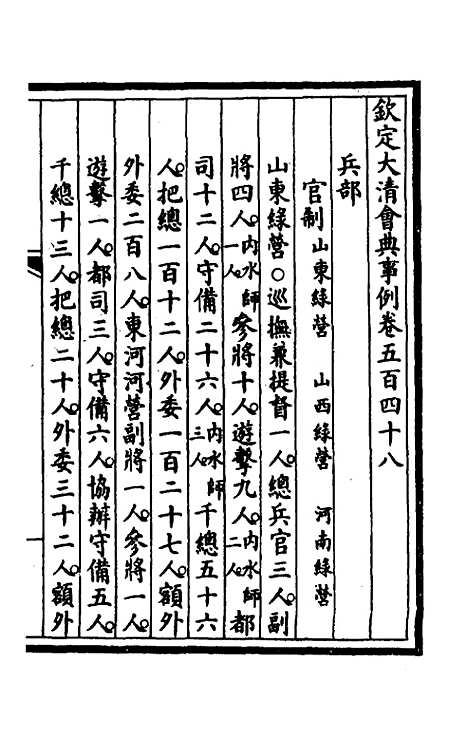 欽定大清會典事例卷五百四十八
兵部
官制 山東綠營 山西綠營 河南綠營
山東綠營○巡撫兼提督一人。總兵官三人。副
將四人。內水師一人。參將十人。遊擊九人。內水師二人。都
司十二人。守備二十六人。內水師三人。千總五十六
人。把總一百十二人。外委一百二十七人。額外
外委二百八人。東河河營副將一人。參將一人。
遊擊一人。都司三人。守備六人。協辦守備五人。
千總十三人。把總二十人。外委三十二人。額外